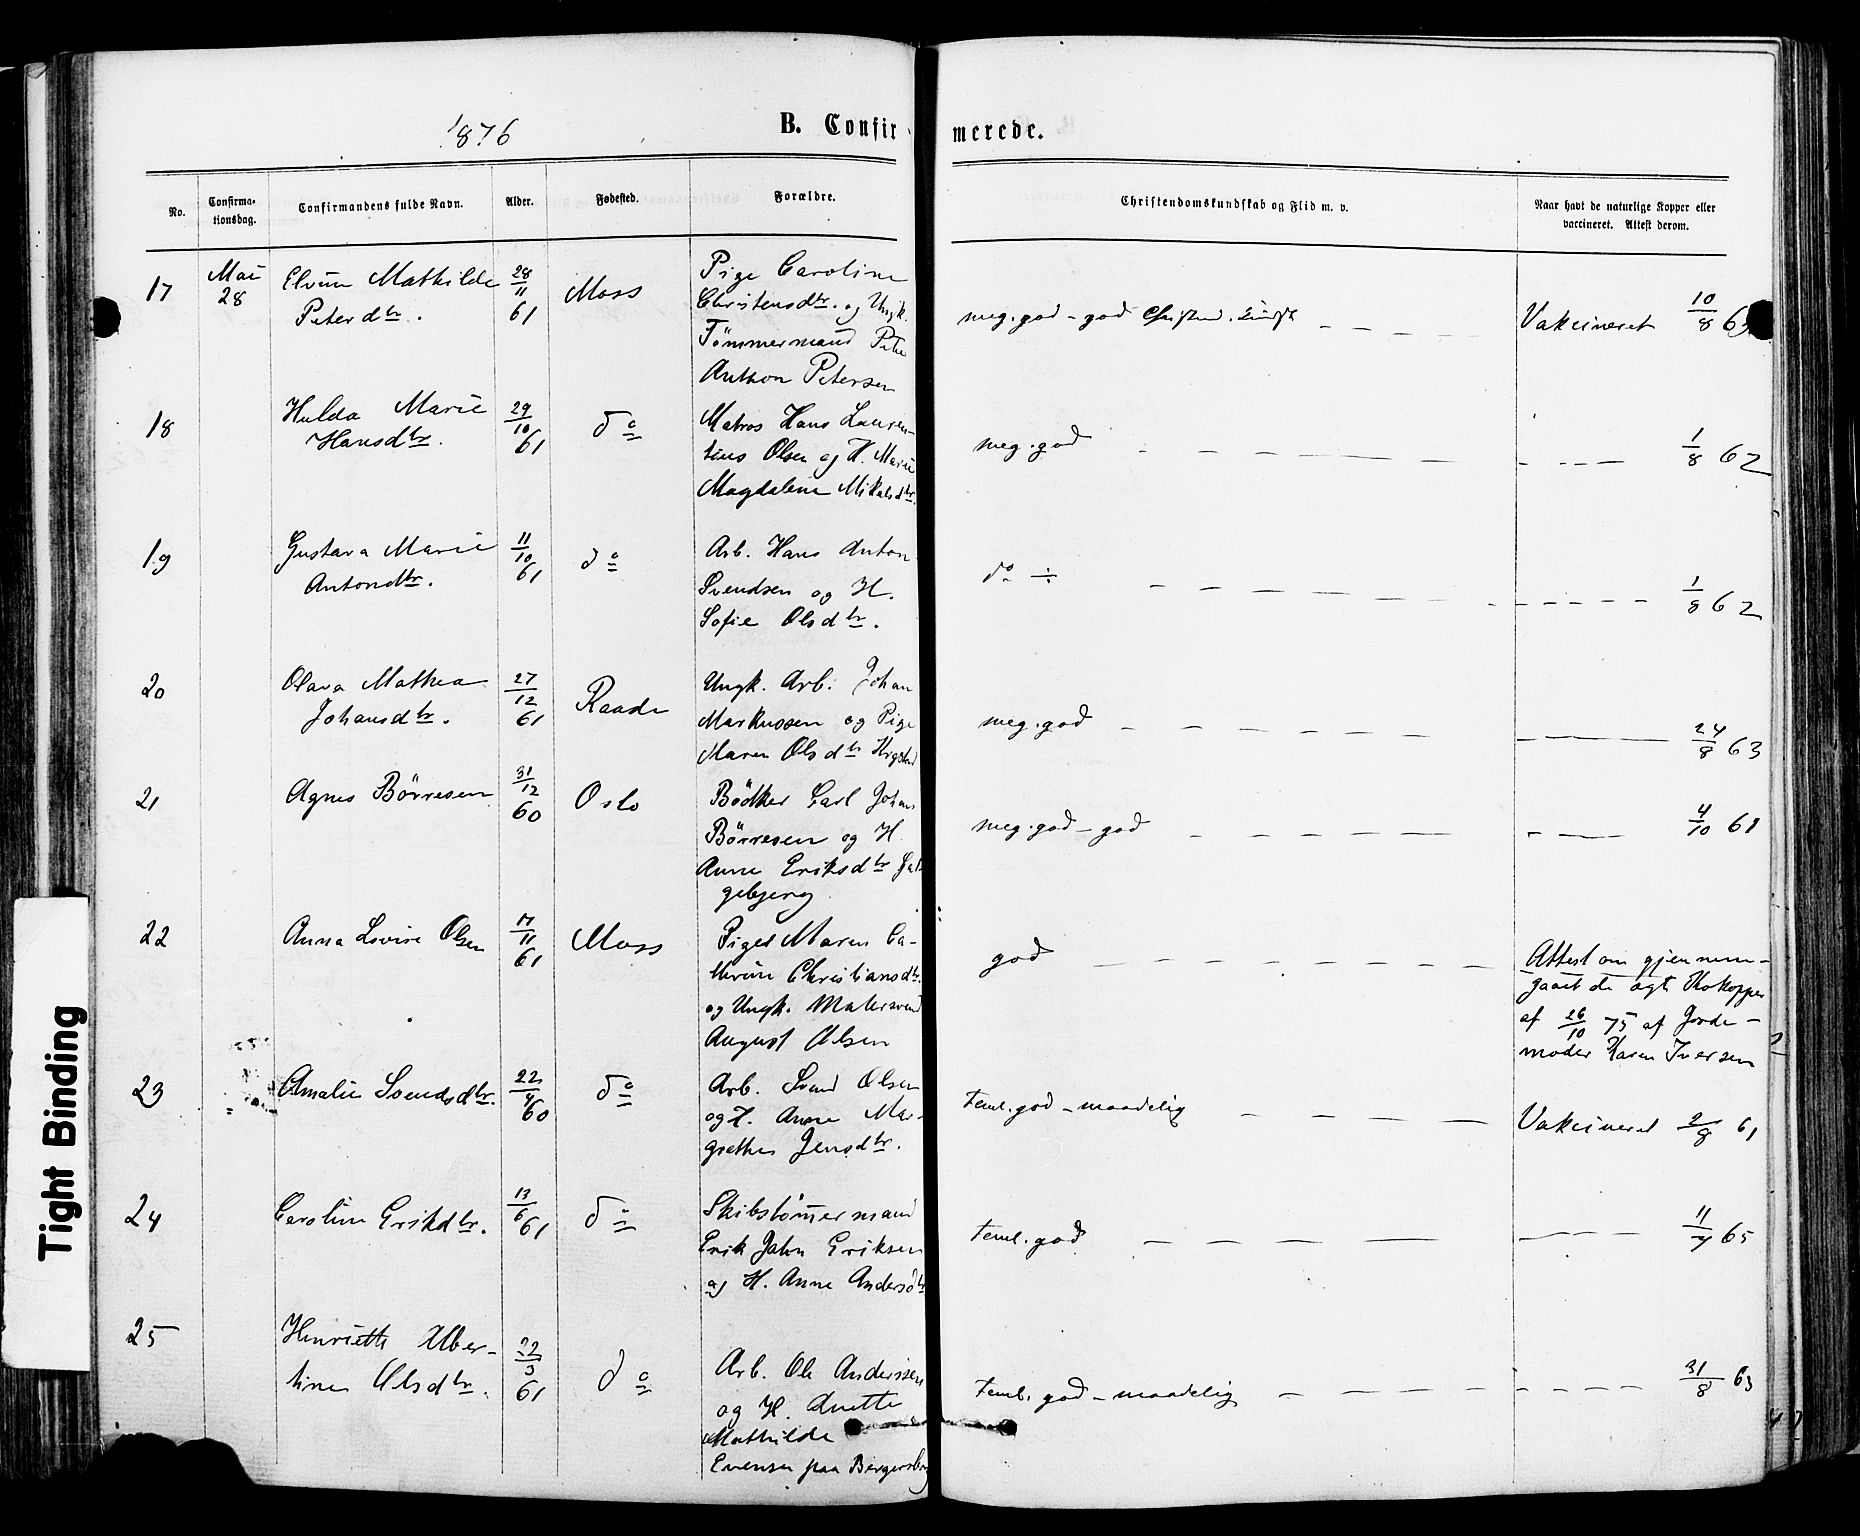 1876
B. Confirmerede.
No.
Confirma-
tionsdag.
Confirmandens fulde Navn.
Alder.
Fødested.
Forældre.
Christendomskundskab og Flid m. v.
Naar havt de naturlige Kopper eller
vaccineret. Attest derom.
17 Mai 28
Elvine Mathilde
Peterdtr.
28/11 61
Moss
Pige Caroline
Christensdtr. og Ungk.
Tömmermand Peter
Anthon Petersen
meg. god - god Christend. Kundsk
Vakcineret 10/8
18
Hulda Marie
Hansdtr.
29/10 61
do
Matros Hans Lauren-
tius Olsen og H. Marie
Magdalene Mikalsdtr.
meg. god
1/8 62
19
Gustava Marie
Antondtr.
11/10 61
do
Arb. Hans Anton
Svendsen og H.
Sofie Olsdtr.
do
1/8 62
20
Olava Mathea
Johansdtr.
27/12 61
Raade
Ungk. Arb. Johan
Markussen og Pige
Maren Olsdtr
meg. god
24/8 63
21
Agnes Börresen
31/12 60
Oslo
Bödker Carl Johan
Börresen og H.
Anne Eriksdtr Gal-
gebjerg
meg. god - god
4/10 61
22
Anna Lovise Olsen
17/11 61
Moss
Piges Maren Ca-
thrine Christiansdtr.
og Ungk. Malersvend
August Olsen
god
Attest om gjennem-
gaaet de ægte Kokopper
af 26/10 75 af Jorde-
moder Karen Iversen
23
Amalie Svendsdtr.
22/4 60
do
Arb. Svend Olsen
og H. Anne Mar-
grethe Jensdtr.
teml. god - maadelig
Vakcineret 2/9 61
24
Caroline Erikdtr.
13/6 61
do
Skibstömmermand
Erik John Eriksen
og H. Anne Andersdtr
teml. god
11/7 65
25
Henriette Alber-
tine Olsdtr.
22/3 61
do
Arb. Ole Anderssen
og H. Anette
Mathilde
Evensen paa Bergersborg
teml. god - maadelig
31/8 63
Tight Binding